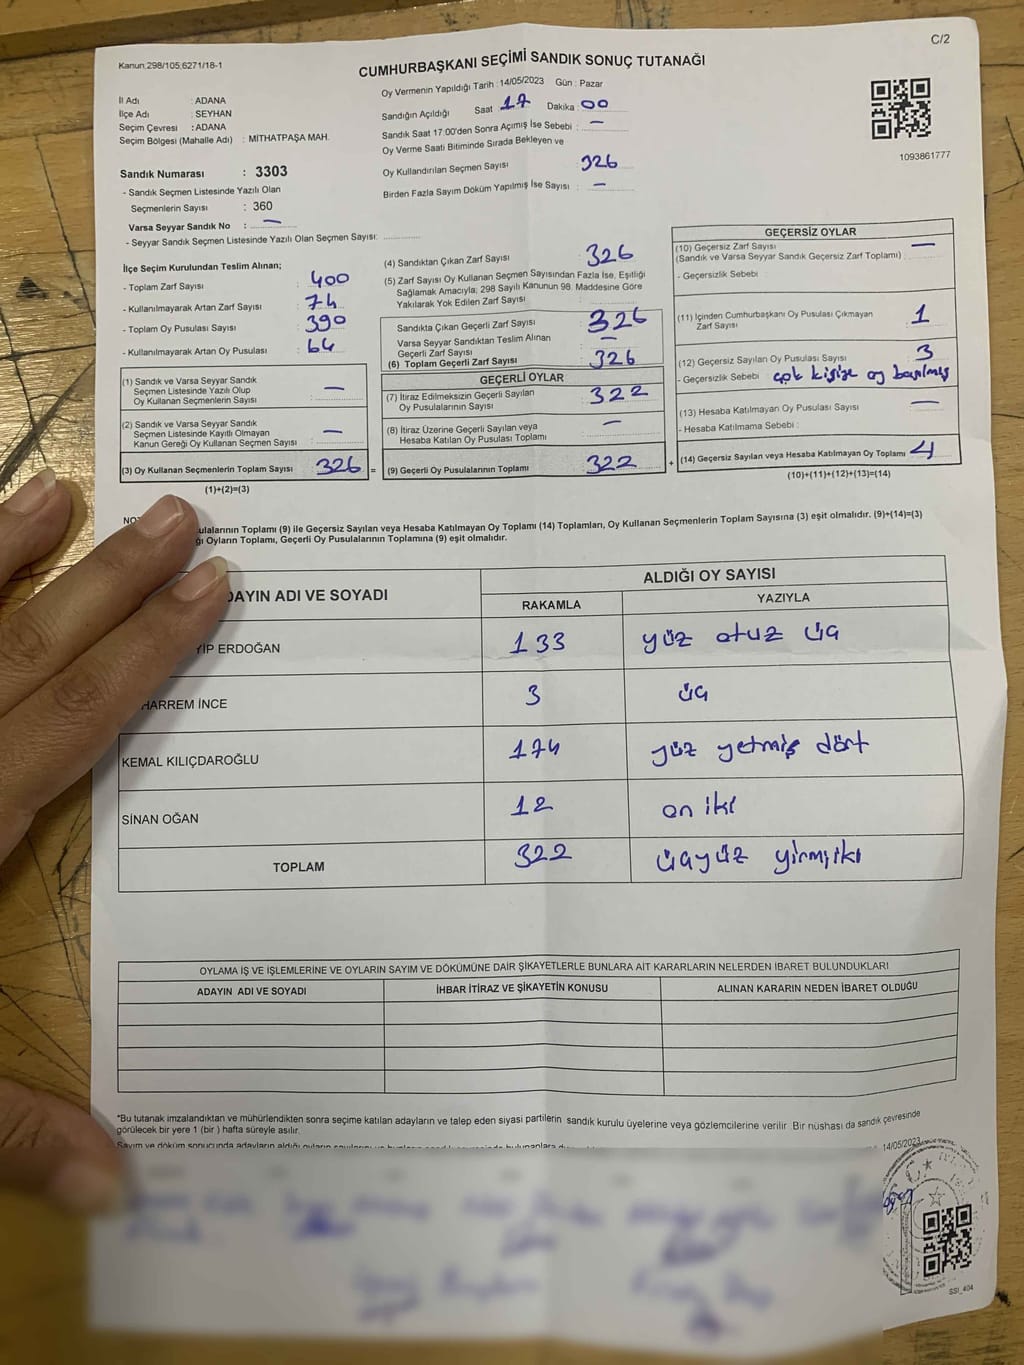 C/2
Kanun:298/105;6271/18-1
CUMHURBAŞKANI SEÇİMİ SANDIK SONUÇ TUTANAĞI
Oy Vermenin Yapıldığı Tarih : 14/05/2023 Gün : Pazar
İl Adı : ADANA
İlçe Adı : SEYHAN
Seçim Çevresi : ADANA
Seçim Bölgesi (Mahalle Adı) : MİTHATPAŞA MAH.
Sandığın Açıldığı Saat 17 Dakika 00
Sandık Saat 17:00'den Sonra Açımış İse Sebebi : —
Oy Verme Saati Bitiminde Sırada Bekleyen ve
Oy Kullandırılan Seçmen Sayısı 326
Birden Fazla Sayım Döküm Yapılmış İse Sayısı : —
1093861777
Sandık Numarası : 3303
- Sandık Seçmen Listesinde Yazılı Olan
Seçmenlerin Sayısı : 360
Varsa Seyyar Sandık No : —
- Seyyar Sandık Seçmen Listesinde Yazılı Olan Seçmen Sayısı:
İlçe Seçim Kurulundan Teslim Alınan;
- Toplam Zarf Sayısı : 400
- Kullanılmayarak Artan Zarf Sayısı : 74
- Toplam Oy Pusulası Sayısı : 390
- Kullanılmayarak Artan Oy Pusulası : 64
(1) Sandık ve Varsa Seyyar Sandık
Seçmen Listesinde Yazılı Olup
Oy Kullanan Seçmenlerin Sayısı : —
(2) Sandık ve Varsa Seyyar Sandık
Seçmen Listesinde Kayıtlı Olmayan
Kanun Gereği Oy Kullanan Seçmen Sayısı : —
(3) Oy Kullanan Seçmenlerin Toplam Sayısı 326 =
(1)+(2)=(3)
(4) Sandıktan Çıkan Zarf Sayısı : 326
(5) Zarf Sayısı Oy Kullanan Seçmen Sayısından Fazla İse, Eşitliği
Sağlamak Amacıyla; 298 Sayılı Kanunun 98. Maddesine Göre
Yakılarak Yok Edilen Zarf Sayısı
Sandıkta Çıkan Geçerli Zarf Sayısı : 326
Varsa Seyyar Sandıktan Teslim Alınan
Geçerli Zarf Sayısı —
(6) Toplam Geçerli Zarf Sayısı : 326
GEÇERLİ OYLAR
(7) İtiraz Edilmeksizin Geçerli Sayılan
Oy Pusulalarının Sayısı : 322
(8) İtiraz Üzerine Geçerli Sayılan veya
Hesaba Katılan Oy Pusulası Toplamı : —
(9) Geçerli Oy Pusulalarının Toplamı : 322 +
GEÇERSİZ OYLAR
(10) Geçersiz Zarf Sayısı
(Sandık ve Varsa Seyyar Sandık Geçersiz Zarf Toplamı) : —
- Geçersizlik Sebebi :
(11) İçinden Cumhurbaşkanı Oy Pusulası Çıkmayan
Zarf Sayısı : 1
(12) Geçersiz Sayılan Oy Pusulası Sayısı : 3
- Geçersizlik Sebebi : çok kişiye oy basılmış
(13) Hesaba Katılmayan Oy Pusulası Sayısı : —
- Hesaba Katılmama Sebebi :
(14) Geçersiz Sayılan veya Hesaba Katılmayan Oy Toplamı 4
(10)+(11)+(12)+(13)=(14)
ulalarının Toplamı (9) ile Geçersiz Sayılan veya Hesaba Katılmayan Oy Toplamı (14) Toplamları, Oy Kullanan Seçmenlerin Toplam Sayısına (3) eşit olmalıdır. (9)+(14)=(3)
Oyların Toplamı, Geçerli Oy Pusulalarının Toplamına (9) eşit olmalıdır.
DAYIN ADI VE SOYADI
ALDIĞI OY SAYISI
RAKAMLA YAZIYLA
YİP ERDOĞAN 133 yüz otuz üç
HARREM İNCE 3 üç
KEMAL KILIÇDAROĞLU 174 yüz yetmiş dört
SİNAN OĞAN 12 on iki
TOPLAM 322 üçyüz yirmi iki
OYLAMA İŞ VE İŞLEMLERİNE VE OYLARIN SAYIM VE DÖKÜMÜNE DAİR ŞİKAYETLERLE BUNLARA AİT KARARLARIN NELERDEN İBARET BULUNDUKLARI
ADAYIN ADI VE SOYADI İHBAR İTİRAZ VE ŞİKAYETİN KONUSU ALINAN KARARIN NEDEN İBARET OLDUĞU
*Bu tutanak imzalandıktan ve mühürlendikten sonra seçime katılan adayların ve talep eden siyasi partilerin sandık kurulu üyelerine veya gözlemcilerine verilir. Bir nüshası da sandık çevresinde
görülecek bir yere 1 (bir ) hafta süreyle asılır.
14/05/2023
SSI_404